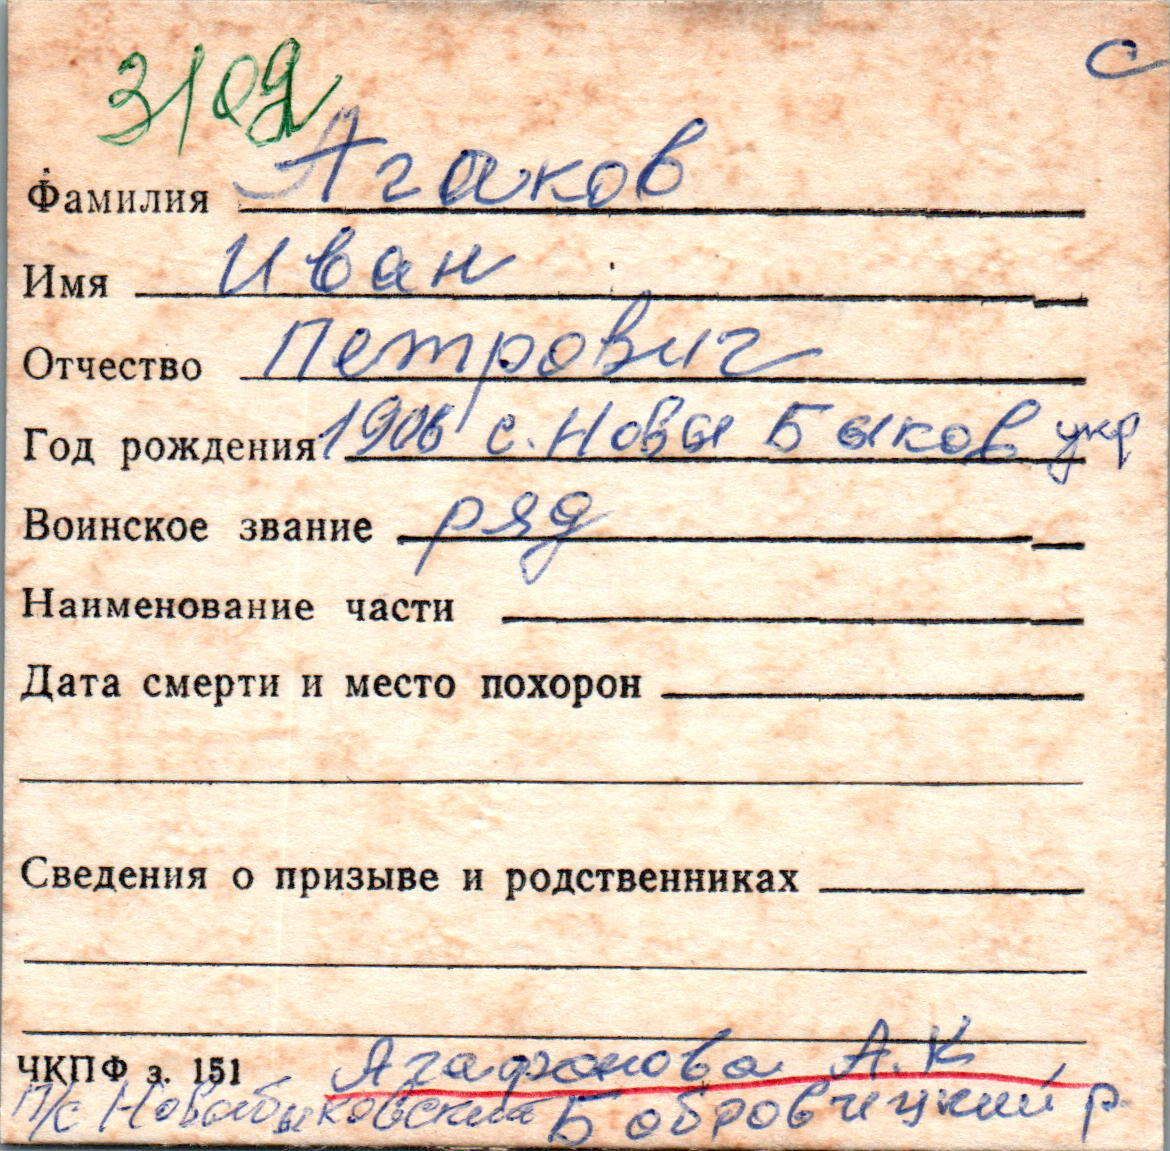 С
3102
Фамилия Агаков
Имя Иван
Отчество Петрович
Год рождения 1906 с. Новы Быков укр
Воинское звание ряд
Наименование части
Дата смерти и место похорон
Сведения о призыве и родственниках
ЧКПФ з. 151 Агафонова А.К
п/с Новобыковский Бобровицкий р.